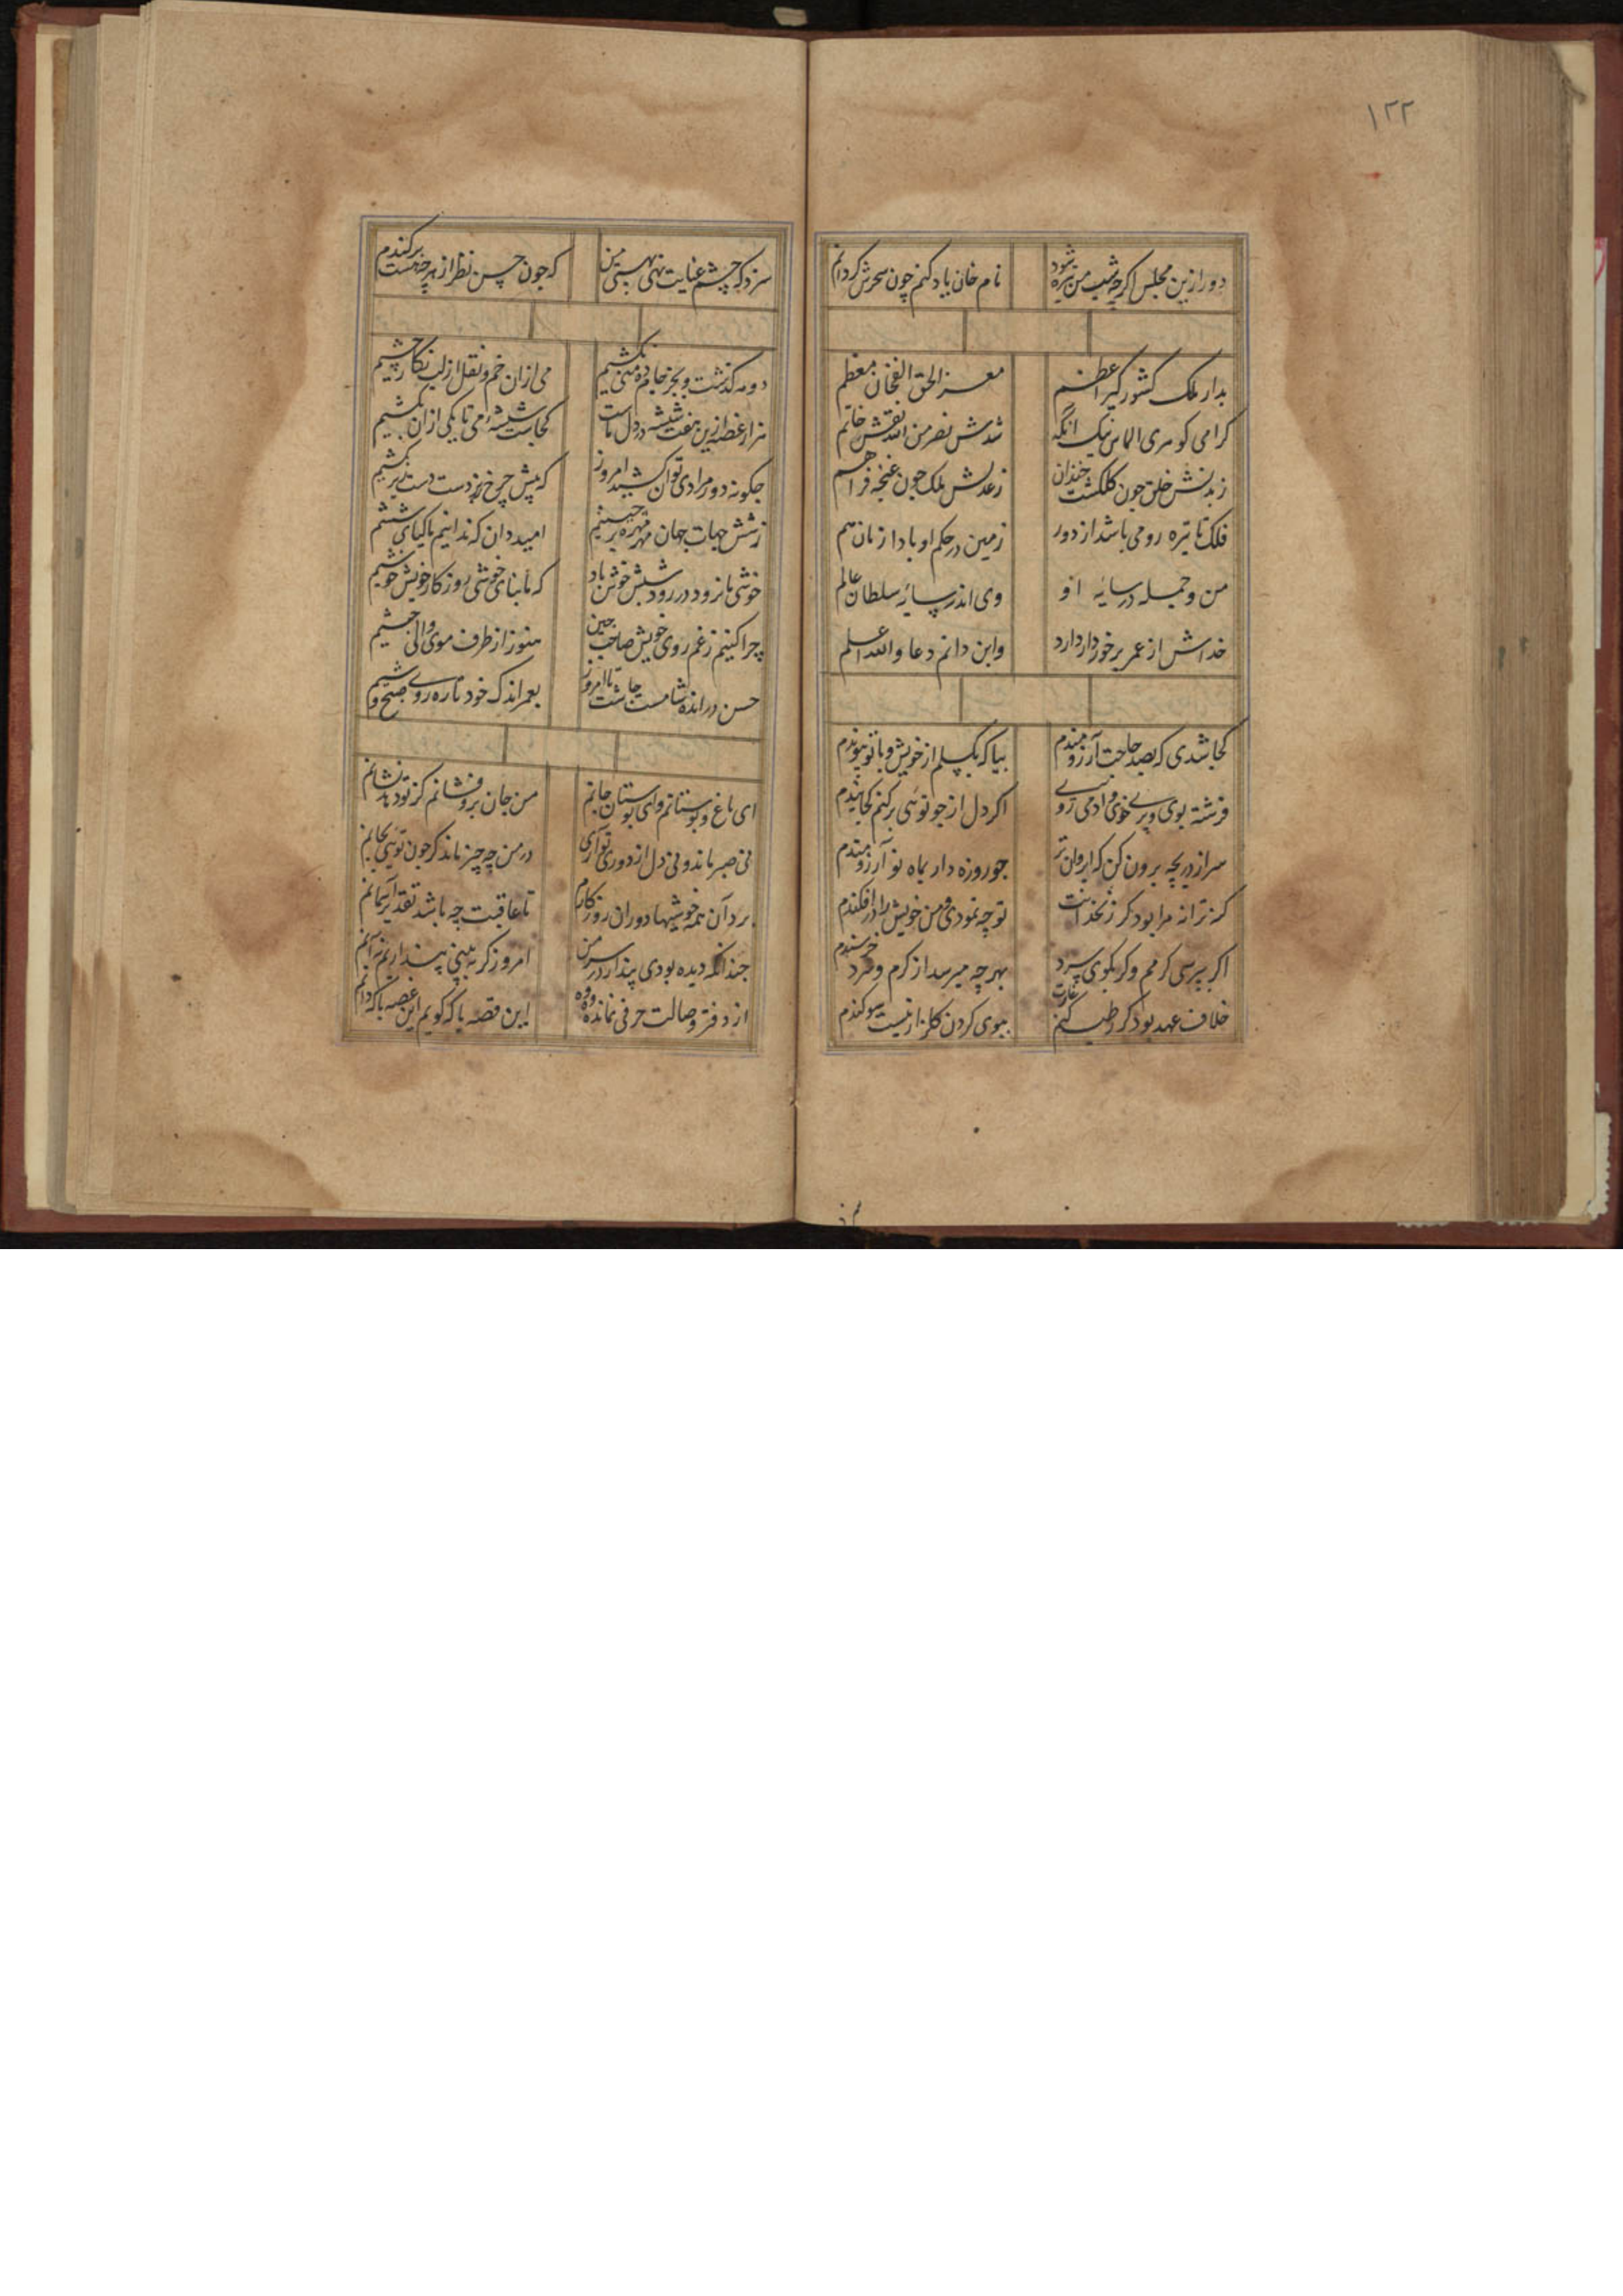 ۱۲۲
دور ازین مجلس اکرچه شب من تیره شود نام خان یاد کنم چون سحرش کردانم
بدار ملک کشورکیر اعظم معز الحق الغخان معظم
کرامی کوهری الماس انکه شدش نصر من الله نقش خاتم
خلق چون کلکشت خندان زعدلش ملک چون غنچه فراهم
فلک تا تیره رومی باشد از دور زمین در حکم او بادا زمان هم
من و جمله در سایه او وی اندر سایه سلطان عالم
خداش از عمر برخوردار دارد واین دانم دعا والله اعلم
کجا شدی که بصد حاجت آرزومندم بیا که بکسلم از خویش و با تو پیوندم
فرشته بوی و پری خوی و ادمی روی اکر دل از چو توئی برکنم کجا بندم
سر از دریچه برون کن که ابروان چو روزه دار بماه نو آرزومندم
کر زنخدانت تو چه نمودی و من خویش را در افکندم
اکر بپرسی کرمم وکر بکوی سرد بهرچه میرسد از کرم و سرد خرسندم
خلاف عهد بود کر کنم ببوی کردن کلزار نیست سوکندم
سزد که چشم عنایت نهی من که چون حسن نظر از هرچه هست برکندم
دو مه کذشت و بجز جام می نکشیم می ازان خم و نقل از لب نکار چشیم
هزار غصه ازین هفت شیشه در دل ماست کجاست شیشه می تا یکی ازان بکشیم
چکونه دور مرادی توان کشید امروز که پیش چرخ دست
زشش جهات جهان مهره امید دان که ندانیم تا کیای ششیم
خوشی ما نرود در رود خوش باد که ما بنای خوشی روزکار خویش خوشیم
چرا کنیم زغم روی خویش صاحب چین هنوز از طرف موی والی حبشیم
حسن در انده شامست چاشت تا امروز بعمر اندک خود تازه روی صبح وشیم
ای باغ و بوستانم وای بوستان جانم من جان برو فشانم کز تو دهد نشانم
نی صبر ماند و نی دل از دوری تو آری در من چه چیز ماند کر چون توئی نجایم
برد آن همه خوشیها دوران روزکارم تا عاقبت چه باشد تقدیر آسمانم
چندانکه دیده بودی پندار در سر من امروز کر ببینی پنداریم نه آنم
از دفتر وصالت حرفی نمانده این قصه با که کویم این غصه با که دانم